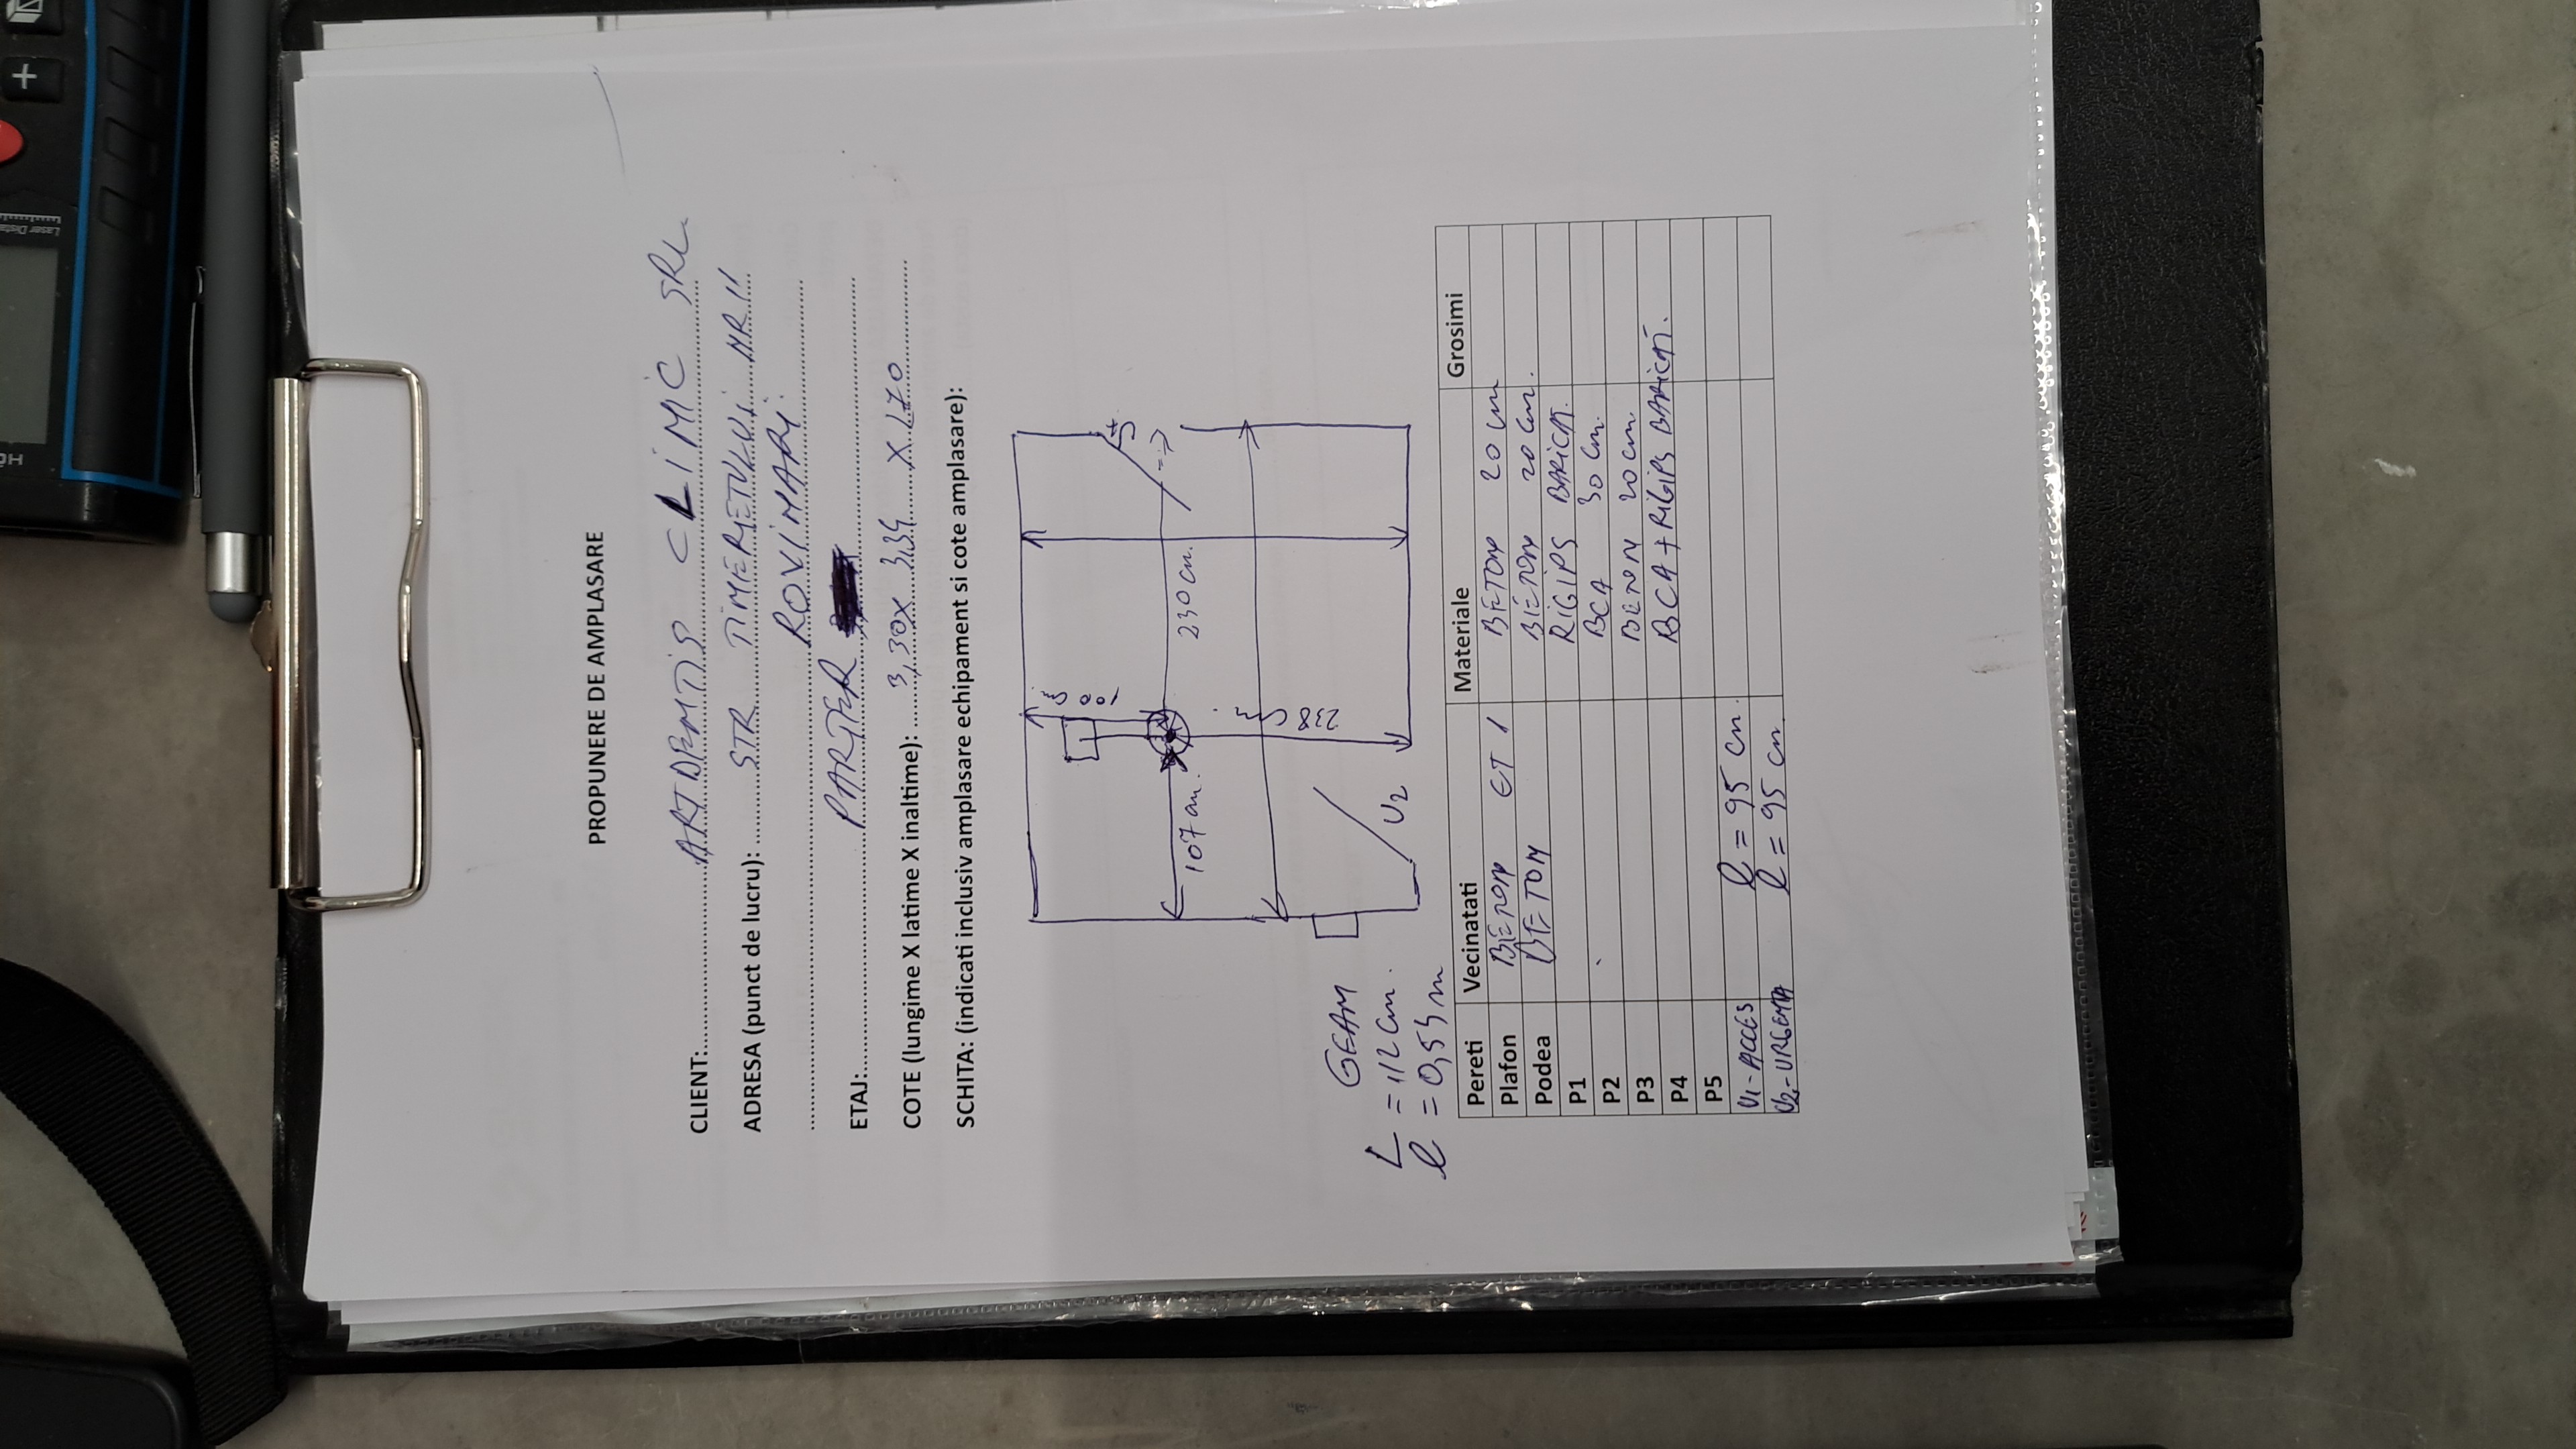 PROPUNERE DE AMPLASARE
CLIENT: ARTDEMTIS CLIMIC SRL
ADRESA (punct de lucru): STR TIMERETULUI MR 11
ROVIMARI
ETAJ: PARTER
COTE (lungime X latime X inaltime): 3,30 X 3,34 X L70
SCHITA: (indicati inclusiv amplasare echipament si cote amplasare):
100
107 cm.
230 cm.
238 cm
U2
GEAM
L = 112 cm.
l = 0,54 m
Pereti Vecinatati Materiale Grosimi
Plafon BETOM ET 1 BETOM 20 cm
Podea BETOM BETOM 20 cm.
P1 RIGIPS BARICAT.
P2 BCA 30 cm.
P3 BETOM 20 cm.
P4 BCA + RIGIPS BARICAT.
P5
U1 - ACCES l = 95 cm.
U2 - URGEMTA l = 95 cm.
Laser Dista